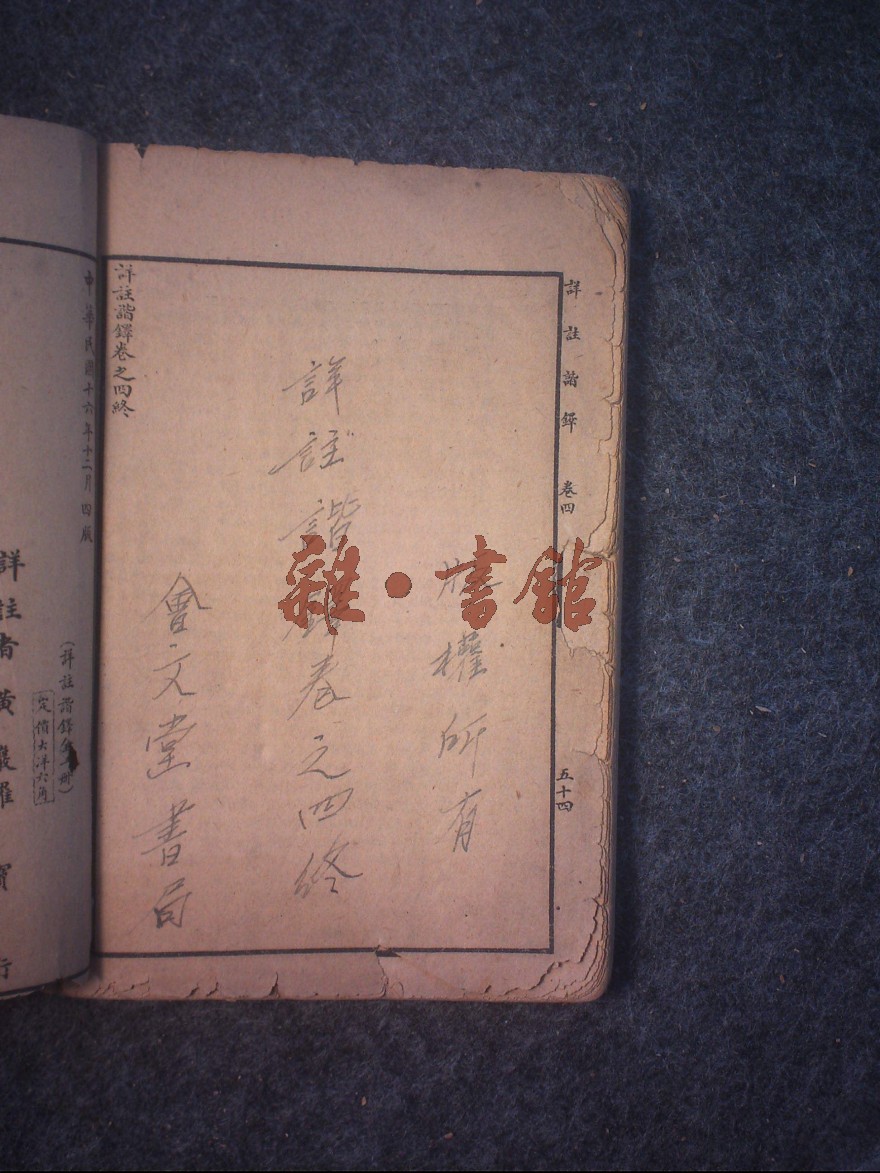 詳註諧鐸 卷四 五十四
版權所有
詳註諧鐸卷之四終
會文堂書局
詳註諧鐸卷之四終
中華民國十六年十二月四版
(詳註諧鐸全 冊)
定價大洋六角
詳註者黃巖羅 行
雜·書館